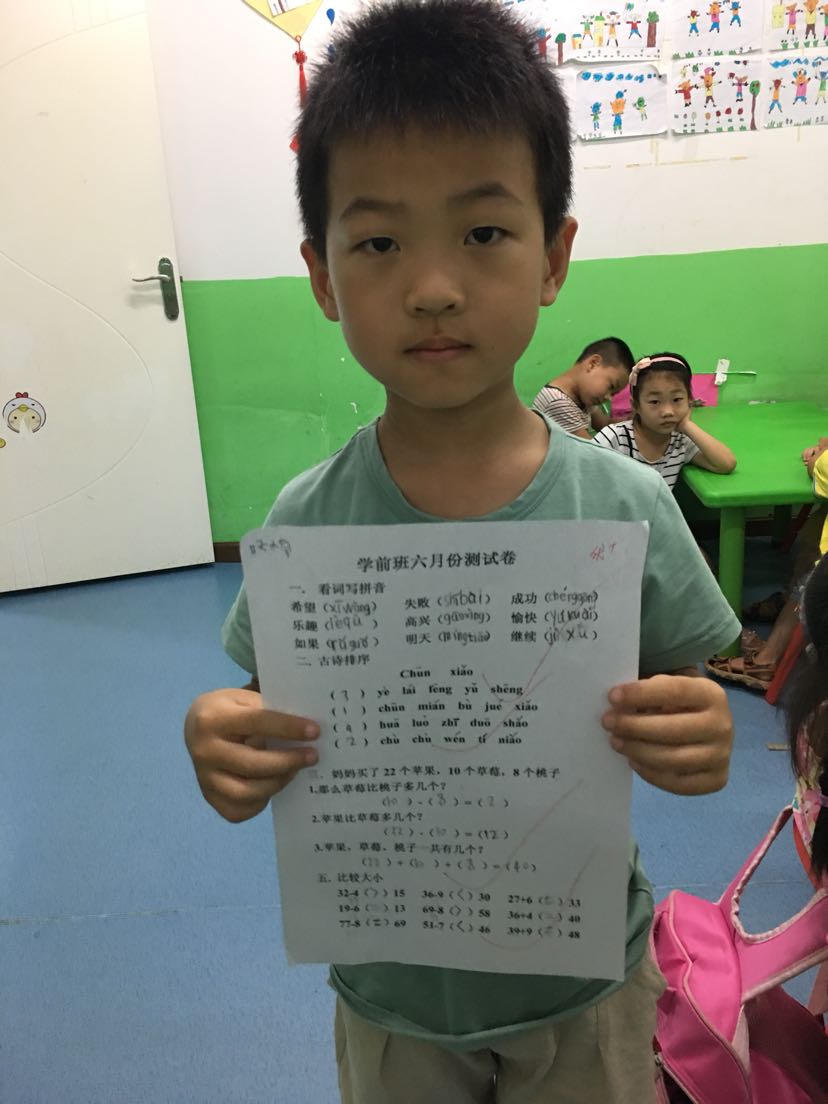 学前班六月份测试卷
一. 看词写拼音
希望(xīwàng) 失败(shībài) 成功(chénggōn)
乐趣(lèqù) 高兴(gāoxìng) 愉快(yúkuài)
如果(rúguǒ) 明天(míngtiān) 继续(jìxù)
二. 古诗排序
Chūn xiǎo
(3) yè lái fēng yǔ shēng
(1) chūn mián bù jué xiǎo
(4) huā luò zhī duō shǎo
(2) chù chù wén tí niǎo
三. 妈妈买了 22 个苹果，10 个草莓，8 个桃子
1.那么草莓比桃子多几个?
(10) - (8) = (2)
2.苹果比草莓多几个?
(22) - (10) = (12)
3.苹果，草莓，桃子一共有几个?
(22) + (10) + (8) = (40)
五. 比较大小
32-4 (>) 15 36-9 (<) 30 27+6 (=) 33
19-6 (=) 13 69-8 (>) 58 36+4 (=) 40
77-8 (=) 69 51-7 (<) 46 39+9 (=) 48